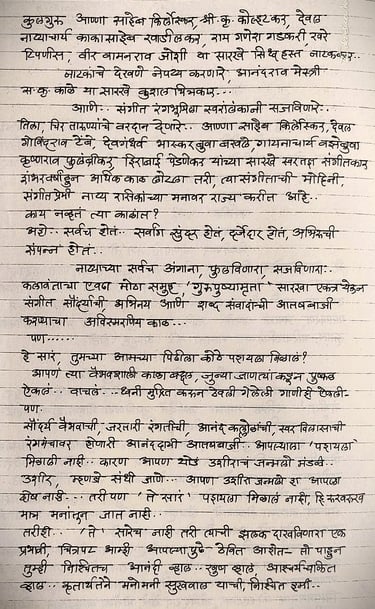 कुलगुरू आण्णा साहेब किर्लोस्कर, श्री. कृ. कोल्हटकर, देवल
नाट्याचार्य काकासाहेब खाडीलकर, राम गणेश गडकरी, खरे
टिपणीस, वीर वामनराव जोशी या सारखे सिध्द हस्त नाटककार..
नाटकाचे देखणे नेपथ्य करणारे, आनंदराव मेस्त्री
स. कृ. काळे या सारखे कुशल चित्रकार...
आणि.. संगीत रंगभूमिला स्वरालंकांनी सजविणारे..
तिला, चिर तारुण्याचे वरदान देणारे.. आण्णा साहेब किर्लोस्कर, देवल
गोविंदराव टेंबे, देवगंधर्व भास्कर बुवा बखले, गायनाचार्य वझेबुवा
कृष्णराव फुलंब्रीकर, हिराबाई पेडणेकर यांच्या सारखे स्वरतज्ञ संगीतकार
शंभर वर्षांहून अधिक काळ लोटला तरी, त्या संगीताची मोहिनी,
संगीतप्रेमी नाट्य रसिकांच्या मनावर राज्य करीत आहे..
काय नव्हतं त्या काळात?
अहो.. सर्वच होतं.. सर्वांग सुंदर होतं, दर्जेदार होतं, अभिरुची
संपन्न होतं..
नाट्याच्या सर्वच अंगाना, फुलविणारा, सजविणारा..
कलावंताचा एवढा मोठा समूह, 'गुरुपुष्यामृता' सारखा एकत्र येऊन
संगीत सौंदर्याची अभिनय आणि शब्द संवादांची आतषबाजी
करण्याचा अविस्मरणिय काळ...
पण......
हे सारं, तुमच्या आमच्या पिढीला कोठे पहायला मिळालं?
आपण त्या वैभवशाली काळा बद्दल, जुन्या जाणत्यां कडून पुष्कळ
ऐकलं.. वाचलं.. ध्वनी मुद्रित करून ठेवली गेलेली गाणीही ऐकली-
पण.
सौंदर्य वैभवाची, जरतारी रंगतीची, आनंद कल्लोळांची, स्वर विलासाची
रंगमंचावर होणारी आनंददायी आतषबाजी.. आपल्याला 'पहायला'
मिळाली नाही.. कारण आपण थोडं उशीराच जन्मलो मंडळी..
उशीर, म्हणजे संधी जाणे.. आपण उशीरा जन्मलो हा आपला
दोष नाही... तरी पण 'ते सारं' पहायला मिळालं नाही, हि रूखरूख
मात्र मनांतून जात नाही..
तरीही.. 'ते' सारेच नाही तरी त्याची झलक दाखविणारा एक
प्रभावी, चित्रपट आम्ही आपल्यापुढे ठेवित आहोत- तो पाहून
तुम्ही निश्चितच आनंदी व्हाल.. खुष व्हाल, आश्चर्यचकित
व्हाल.. कृतार्थतेने मनोमनी सुखवाल याची, निश्चित हमी..